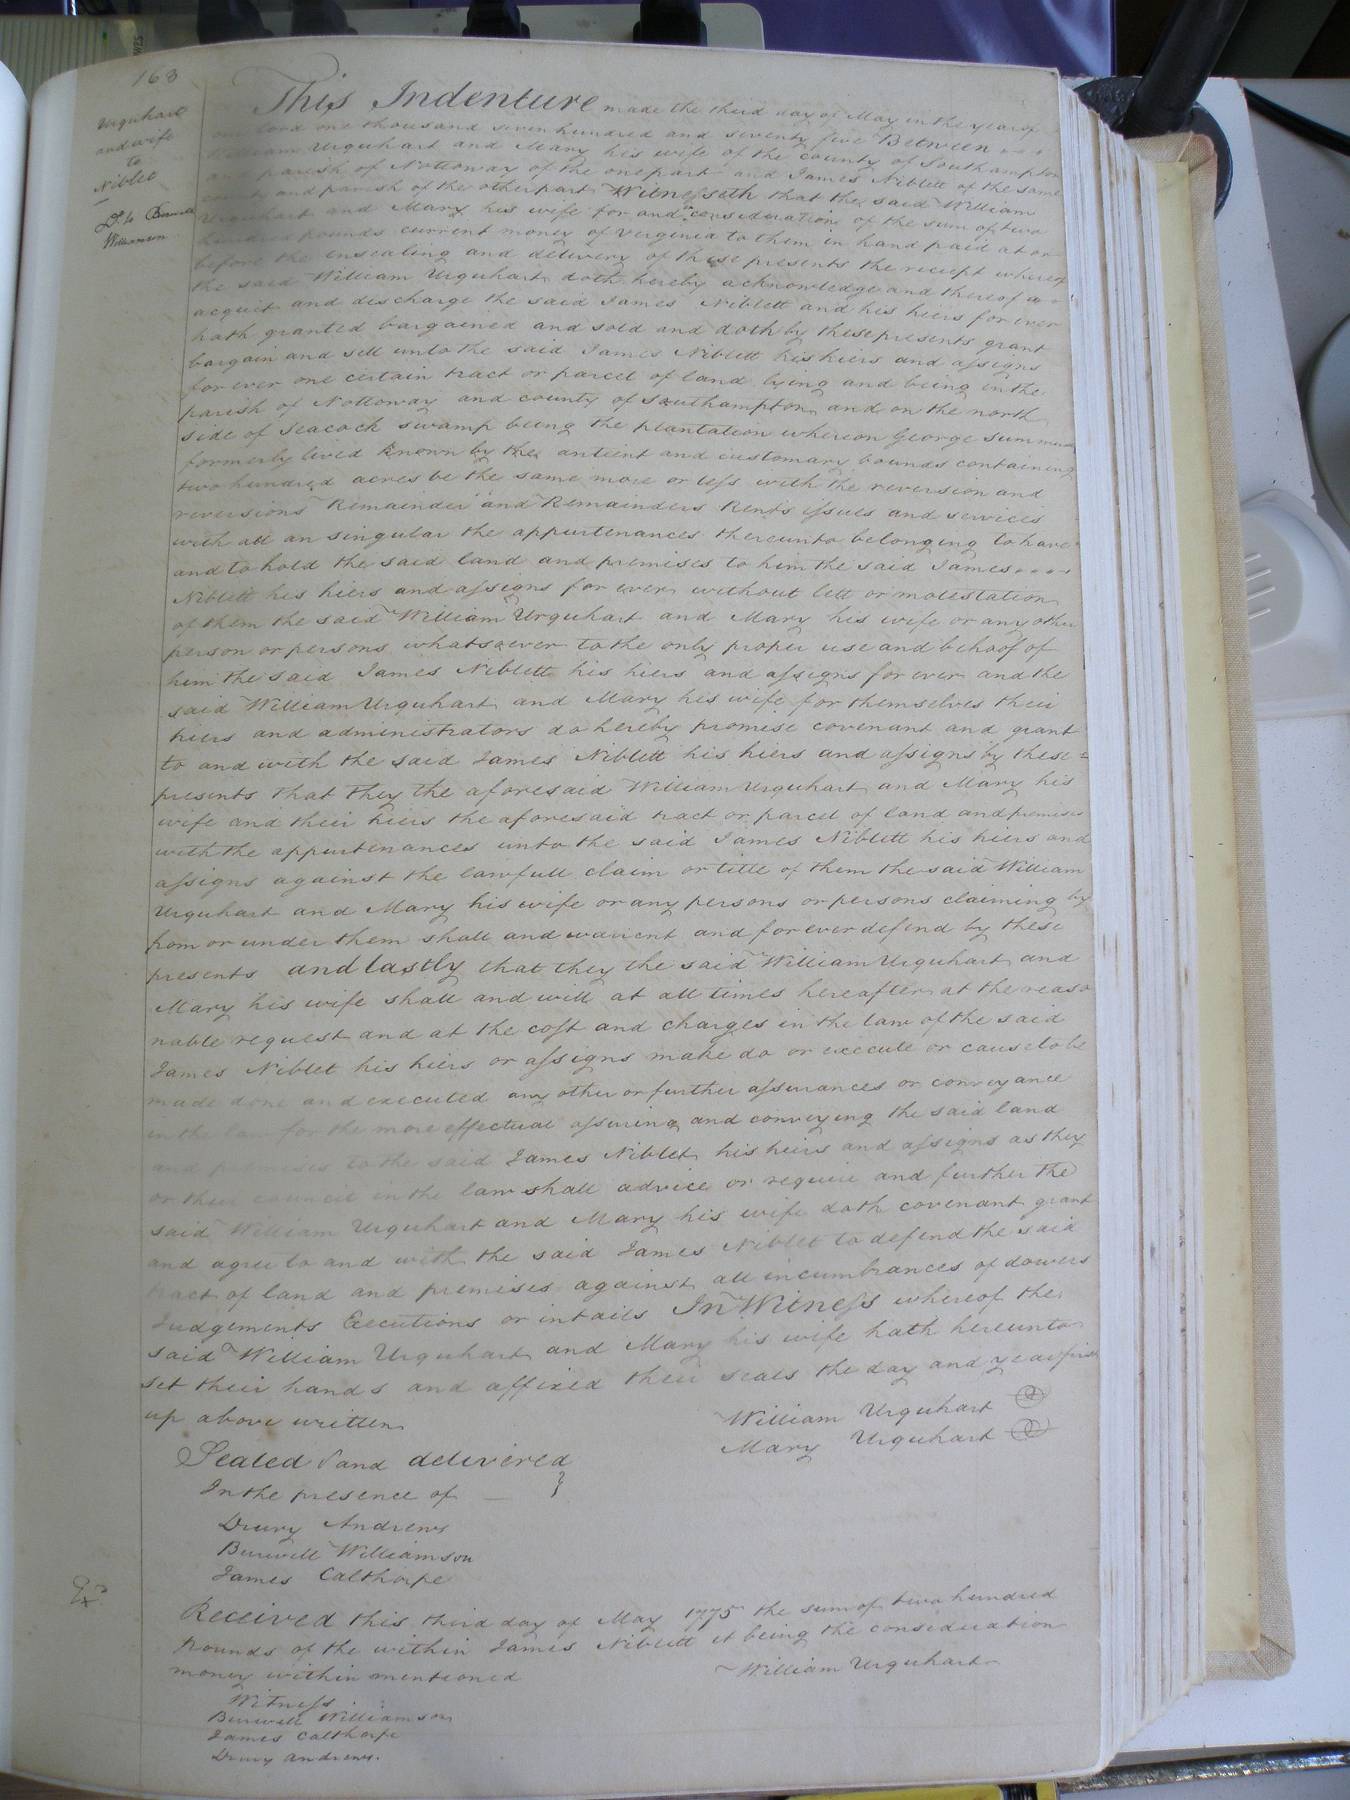 168
Urquhart
and wife
to
Niblet
Williamson
This Indenture made the third day of May in the year of
our lord one thousand seven hundred and seventy five Between
William Urquhart and Mary his wife of the county of Southampton
and parish of Nottoway of the one part and James Niblett of the same
county and parish of the other part Witnesseth that the said William
Urquhart and Mary his wife for and consideration of the sum of two
hundred pounds current money of Virginia to them in hand paid at or
before the insealing and delivery of these presents the receipt whereof
the said William Urquhart doth hereby acknowledge and thereof
acquit and discharge the said James Niblett and his heirs for ever
hath granted bargained and sold and doth by these presents grant
bargain and sell unto the said James Niblett his hiers and assigns
for ever one certain tract or parcel of land lying and being in the
parish of Nottoway and county of Southampton and on the north
side of Seacock swamp being the plantation whereon George
formerly lived Known by the antient and customary bounds containing
two hundred acres be the same more or less with the reversion and
reversions Remainder and Remainders Rents issues and services
with all an singular the appurtenances thereunto belonging to have
and to hold the said land and premises to him the said James
Niblett his hiers and assigns for ever without lett or molestation
of them the said William Urquhart and Mary his wife or any other
person or persons whatsoever to the only proper use and behoof of
him the said James Niblett his hiers and assigns for ever and the
said William Urquhart and Mary his wife for themselves their
hiers and administrators do hereby promise covenant and grant
to and with the said James Niblett his hiers and assigns by these =
presents that they the aforesaid William Urquhart and Mary his
wife and their hiers the aforesaid tract or parcel of land and premises
with the appurtenances unto the said James Niblett his hiers and
assigns against the lawfull claim or title of them the said William
Urquhart and Mary his wife or any persons or persons claiming by
from or under them shall and warrent and for ever defend by these
presents and lastly that they the said William Urquhart and
Mary his wife shall and will at all times hereafter at the reaso
nable request and at the cost and charges in the law of the said
James Niblet his hiers or assigns make do or execute or cause to be
made done and executed any other or further assurances or conveyance
in the law for the more effectual assuring and conveying the said land
and premises to the said James Niblet his heirs and assigns as they
or their council in the law shall advice or require and further the
said William Urquhart and Mary his wife doth covenant grant
and agree to and with the said James Niblet to defend the said
tract of land and premises against all incumbrances of dowers
Judgements Executions or intails In Witness whereof the
said William Urquhart and Mary his wife hath hereunto
set their hands and affixed their seals the day and year first
up above written
William Urquhart
Mary Urquhart
Sealed and delivered
In the presence of
Drury Andrews
Burwell Williamson
James Calthorpe
Received this third day of May 1775 the sum of two hundred
Pounds of the within James Niblett it being the consideration
money within mentioned
William Urquhart
Witness
Burwell Williamson
James Calthorpe
Drury Andrews.